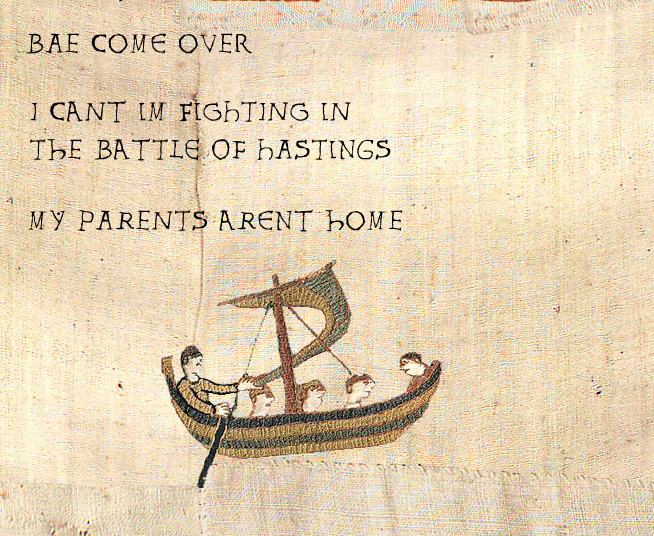 BAE COME OVER
I CANT IM FIGHTING IN
THE BATTLE OF HASTINGS
MY PARENTS ARENT HOME